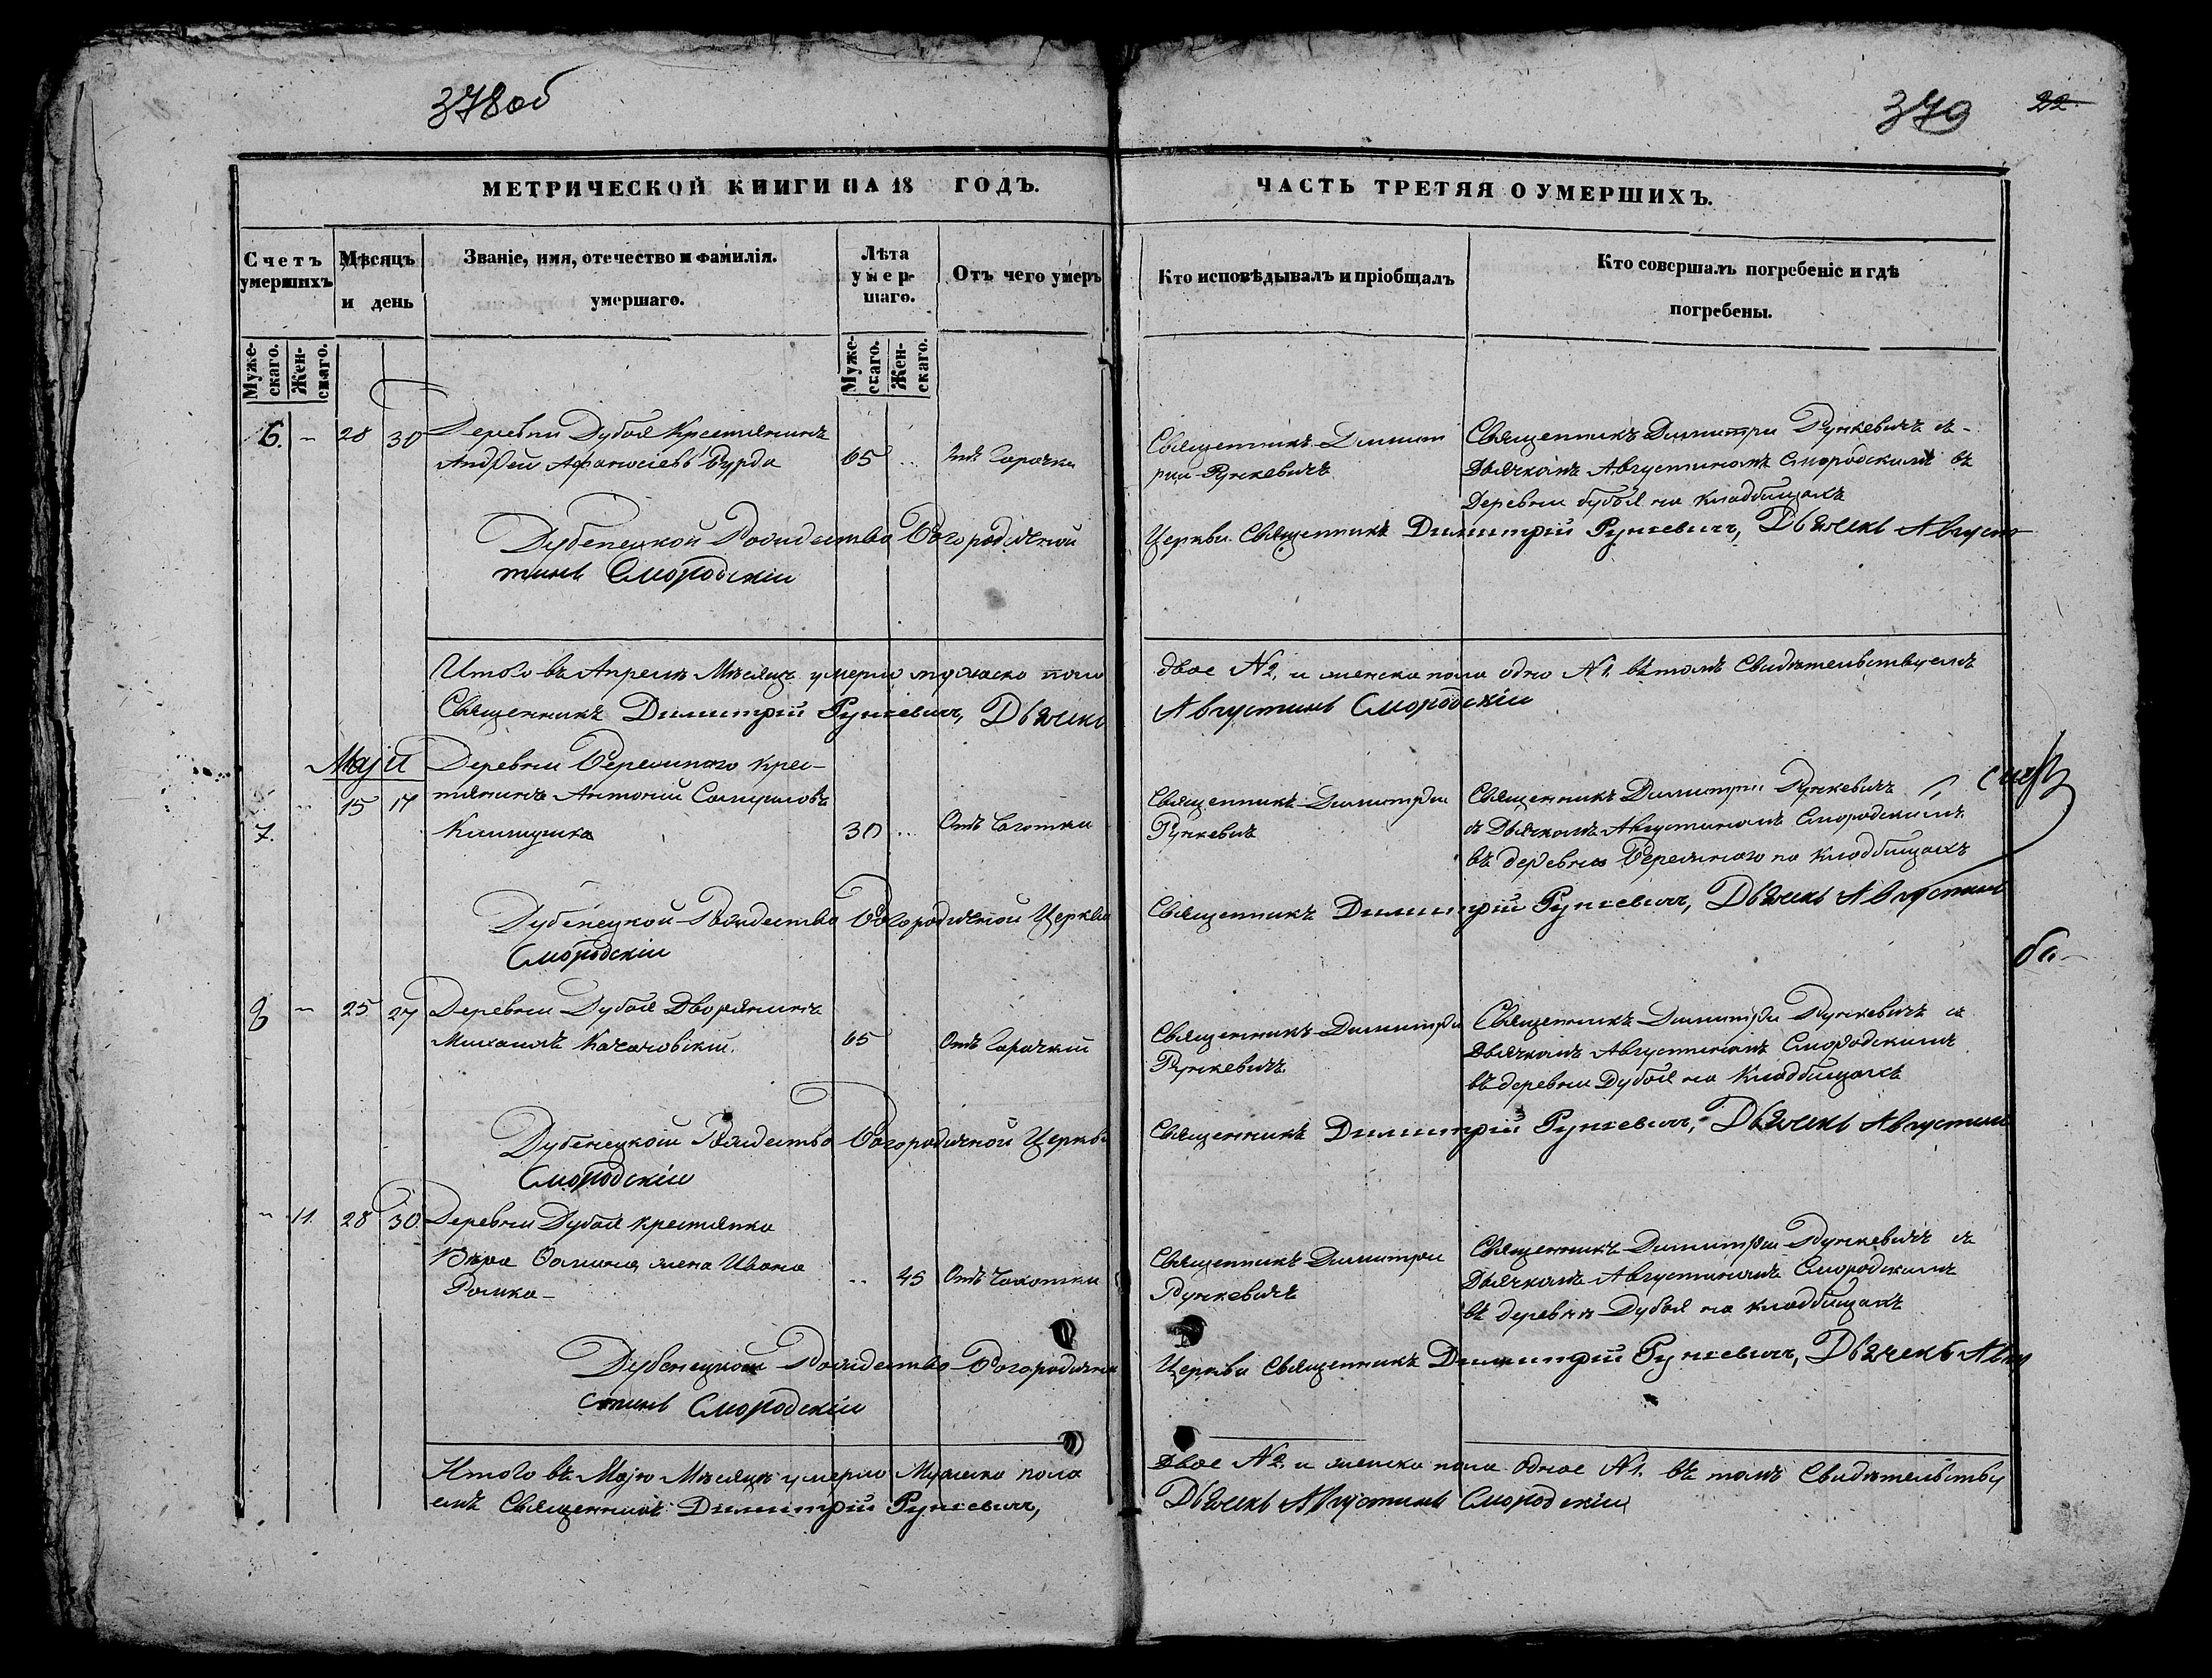 378об
379
22
МЕТРИЧЕСКОЙ КНИГИ НА 18 ГОДЪ.
ЧАСТЬ ТРЕТЯЯ О УМЕРШИХЪ.
Счетъ умершихъ
Мѣсяцъ и день
Званіе, имя, отечество и фамилія. умершаго.
Лѣта умершаго.
Отъ чего умеръ
Кто исповѣдывалъ и пріобщалъ
Кто совершалъ погребеніе и гдѣ погребены.
Мужескаго.
Женскаго.
Мужескаго.
Женскаго.
6. 28 30 Деревни Дубоя Крестянинъ
Андрей Афанасіевъ Бурда 65 Отъ Горячки
Священникъ Димит
рій Рункевичъ
Священникъ Димитри Рункевичъ съ
Дьячкомъ Августиномъ Смородскимъ въ
Деревни Дубоя на кладбищахъ
Дубенецкой Рождества Богородичной Церкви Священникъ Димитрій Рункевичъ, Дьячекъ Авгус
тинъ Смородскіи
Итого въ Апрелѣ Мѣсяцѣ умерло мужеско пола двое №2, и женска пола одно №1. въ томъ Свидѣтельствуемъ
Священникъ Димитрій Рункевичъ, Дьячекъ Августинъ Смородскіи
Маји
7. 15 17 Деревни Бережного Крес-
тянинъ Антоній Самуиловъ
Климушка 30 Отъ Чахотки
Священникъ Димитри
Рункевичъ
Священникъ Димитри Рункевичъ
съ Дьячкомъ Августиномъ Смородскимъ
въ деревни Бережного на Кладбищахъ
Дубенецкой Рождества Богородичной Церкви Священникъ Димитрій Рункевичъ, Дьячекъ Августинъ
Смородскіи
8 25 27 Деревни Дубоя Дворянинъ
Михаилъ Качановскій. 65 Отъ Горячкіи
Священникъ Димитри
Рункевичъ
Священникъ Димитри Рункевичъ съ
Дьячкомъ Августиномъ Смородскимъ
въ деревни Дубоя на Кладбищахъ
Дубенецкой Рождества Богородичной Церкви Священникъ Димитрій Рункевичъ, Дьячекъ Августинъ
Смородскіи
11. 28 30. Деревни Дубоя крестянка
Вѣра жена Ивана
Ромка 45 Отъ Чахотки
Священникъ Димитри
Рункевичъ
Священникъ Димитри Рункевичъ съ
Дьячкомъ Августиномъ Смородскимъ
въ деревни Дубоя на кладбищахъ
Дубенецкой Рождества Богородичной Церкви Священникъ Димитрій Рункевичъ, Дьячекъ Авгу
стинъ Смородскіи
Итого въ Мајю Мѣсяцѣ умерло Мужеско пола двое №2. и женска пола одное №1. въ томъ Свидѣтельству
емъ Священникъ Димитрій Рункевичъ, Дьячекъ Августинъ Смородскіи